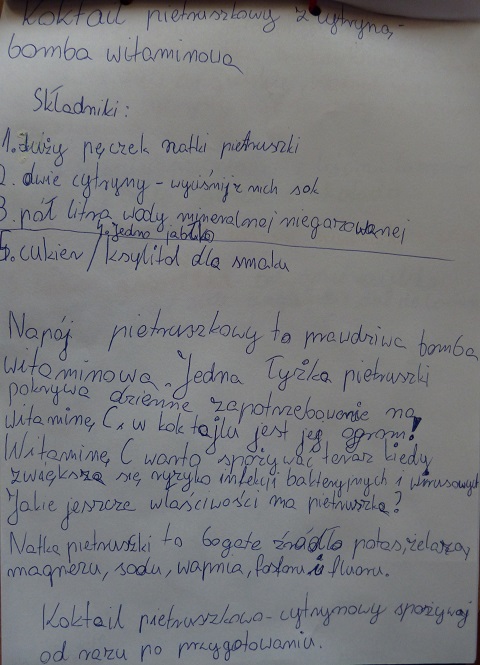 Koktail pietruszkowy z cytryną -
bomba witaminowa
Składniki:
1. duży pęczek natki pietruszki
2. dwie cytryny - wyciśnij z nich sok
3. pół litra wody mineralnej niegazowanej
4. jedno jabłko
5. cukier / ksylitol dla smaku
Napój pietruszkowy to prawdziwa bomba
witaminowa. Jedna łyżka pietruszki
pokrywa dzienne zapotrzebowanie na
witaminę C, w koktajlu jest jej ogrom!
Witaminę C warto spożywać teraz kiedy
zwiększa się ryzyko infekcji bakteryjnych i wirusowych
Jakie jeszcze właściwości ma pietruszka?
Natka pietruszki to bogate źródło potas, żelaza,
magnezu, sodu, wapnia, fosforu i fluoru.
Koktail pietruszkowo-cytrynowy spożywaj
od razu po przygotowaniu.